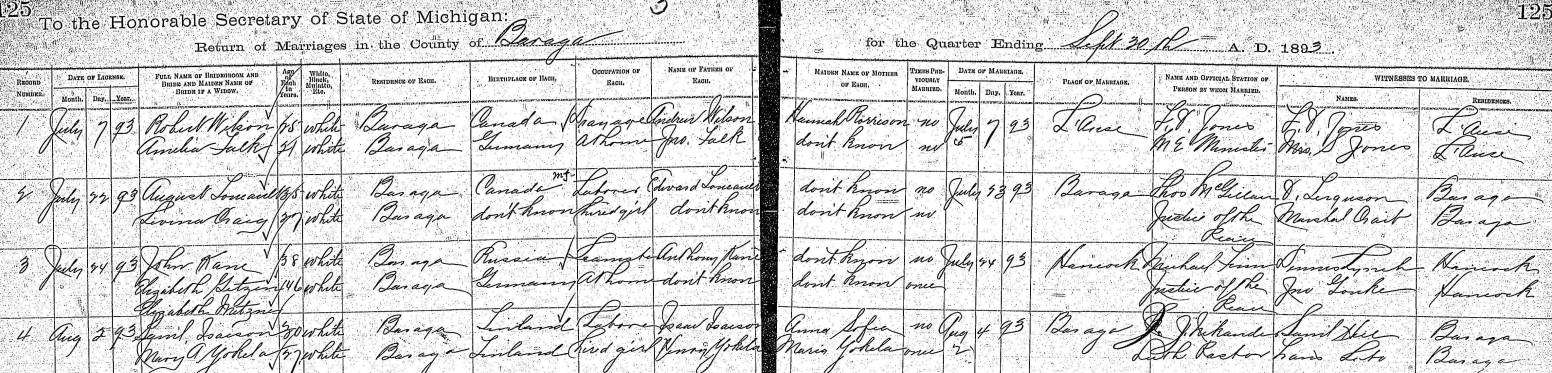 125
3
125
To the Honorable Secretary of State of Michigan:
Return of Marriages in the County of Baraga for the Quarter Ending Sept 30th A. D. 1893.
RECORD NUMBER. DATE OF LICENSE. Month. Day. Year. FULL NAME OF BRIDEGROOM AND BRIDE AND MAIDEN NAME OF BRIDE IF A WIDOW. Age of Each in Years. White, Black, Mulatto, Etc. RESIDENCE OF EACH. BIRTHPLACE OF EACH. OCCUPATION OF EACH. NAME OF FATHER OF EACH. MAIDEN NAME OF MOTHER OF EACH. TIMES PREVIOUSLY MARRIED. DATE OF MARRIAGE. Month. Day. Year. PLACE OF MARRIAGE. NAME AND OFFICIAL STATION OF PERSON BY WHOM MARRIED. WITNESSES TO MARRIAGE. NAMES. RESIDENCES.
1 July 7 93 Robert Wilson 25 white Baraga Canada Drayage Andrew Wilson Hannah Morrison no July 7 93 L'Anse F. D. Jones F. D. Jones L'Anse
Amelia Falk 21 white Baraga Germany At home Jno. Falk don't know no 5 M E Minister Mrs. Jones L'Anse
2 July 22 93 August 35 white Baraga Canada Laborer Edward don't know no July 23 93 Baraga Thos D. Ferguson Baraga
Craig 27 white Baraga don't know hired girl don't know don't know no Justice of the Marshal Baraga
Peace
3 July 24 93 John Kane 38 white Baraga Russia Teamster Anthony Kane don't know no July 24 93 Hancock Michael Finn Dennis Lynch Hancock
Elizabeth 46 white Baraga Germany At home don't know don't know once Justice of the Jno Hancock
Elizabeth Peace
4 Aug 2 93 Isaacson 30 white Baraga Finland Labore Isaac Isaacson Anna Sofia no Aug 4 93 Baraga Baraga
Mary A Yokela 27 white Baraga Finland hired girl Henry Yokela Maria Yokela once 2 Pastor Baraga